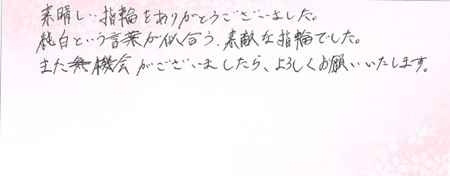 素晴しい指輪をありがとうございました。
純白という言葉が似合う、素敵な指輪でした。
また機会がございましたら、よろしくお願いいたします。